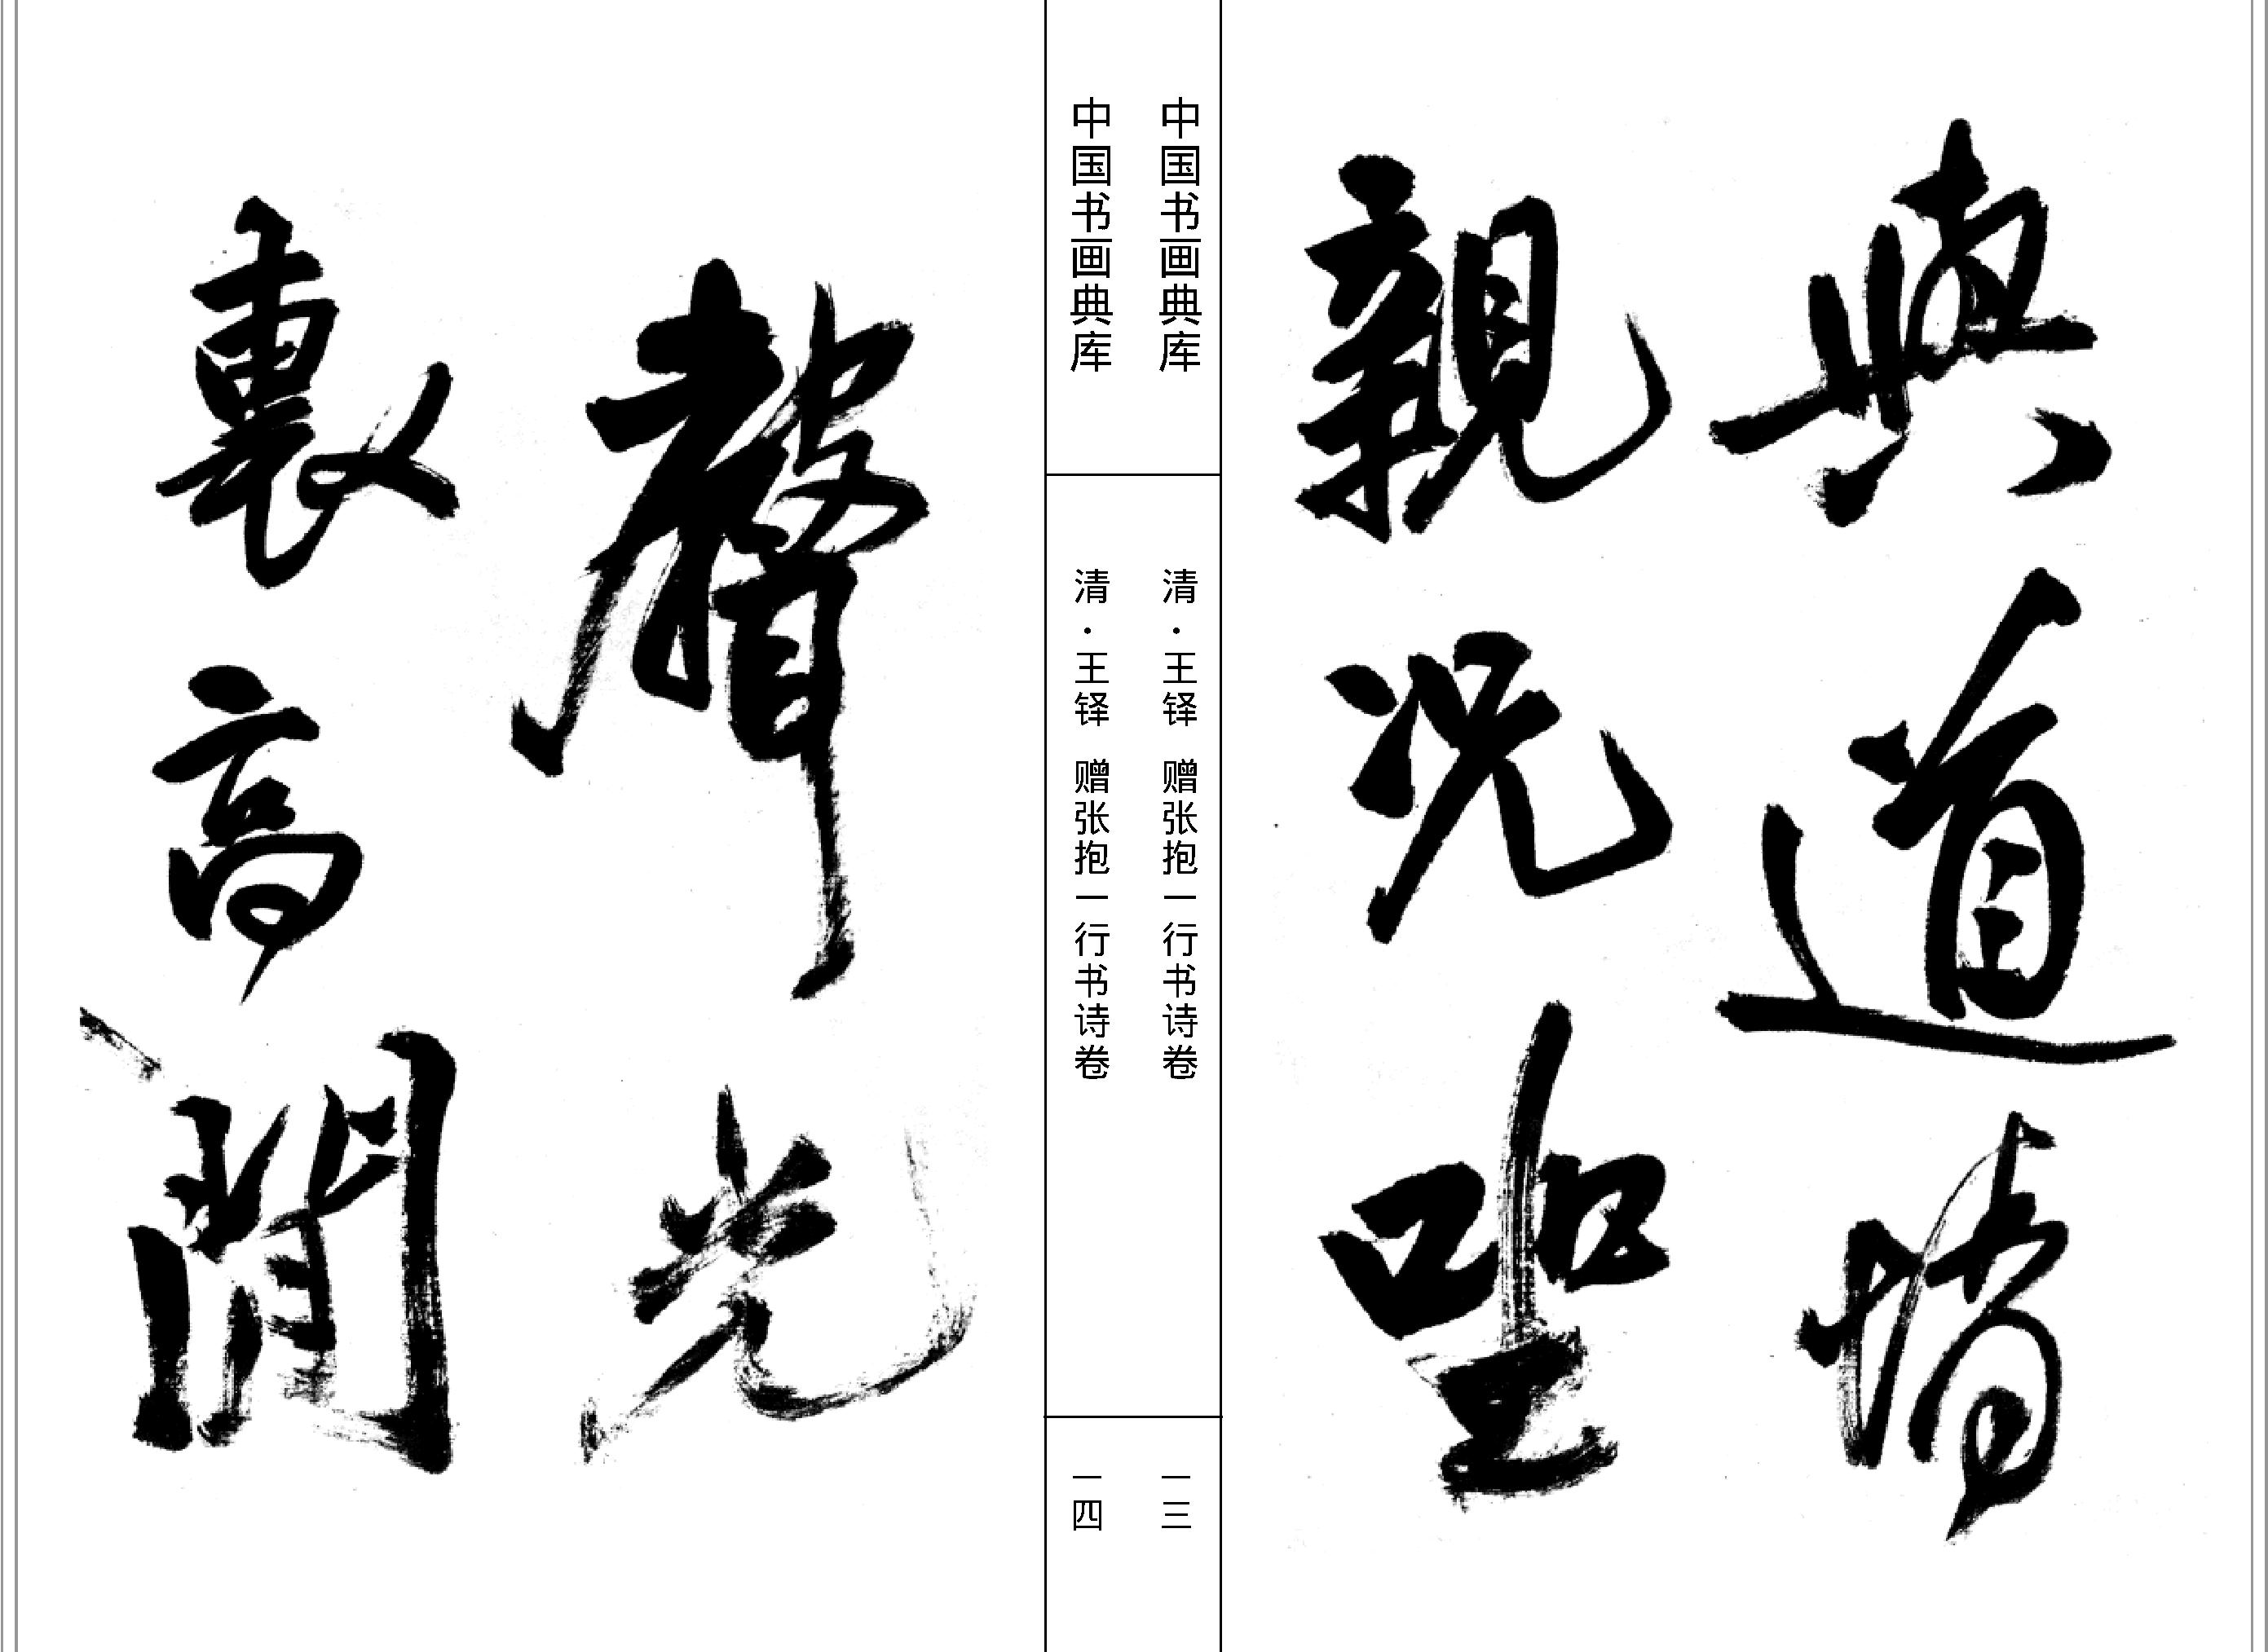 與道情
親況坐
中国书画典库 清·王铎 赠张抱一行书诗卷 一三
中国书画典库 清·王铎 赠张抱一行书诗卷 一四
聲光
裏高閒